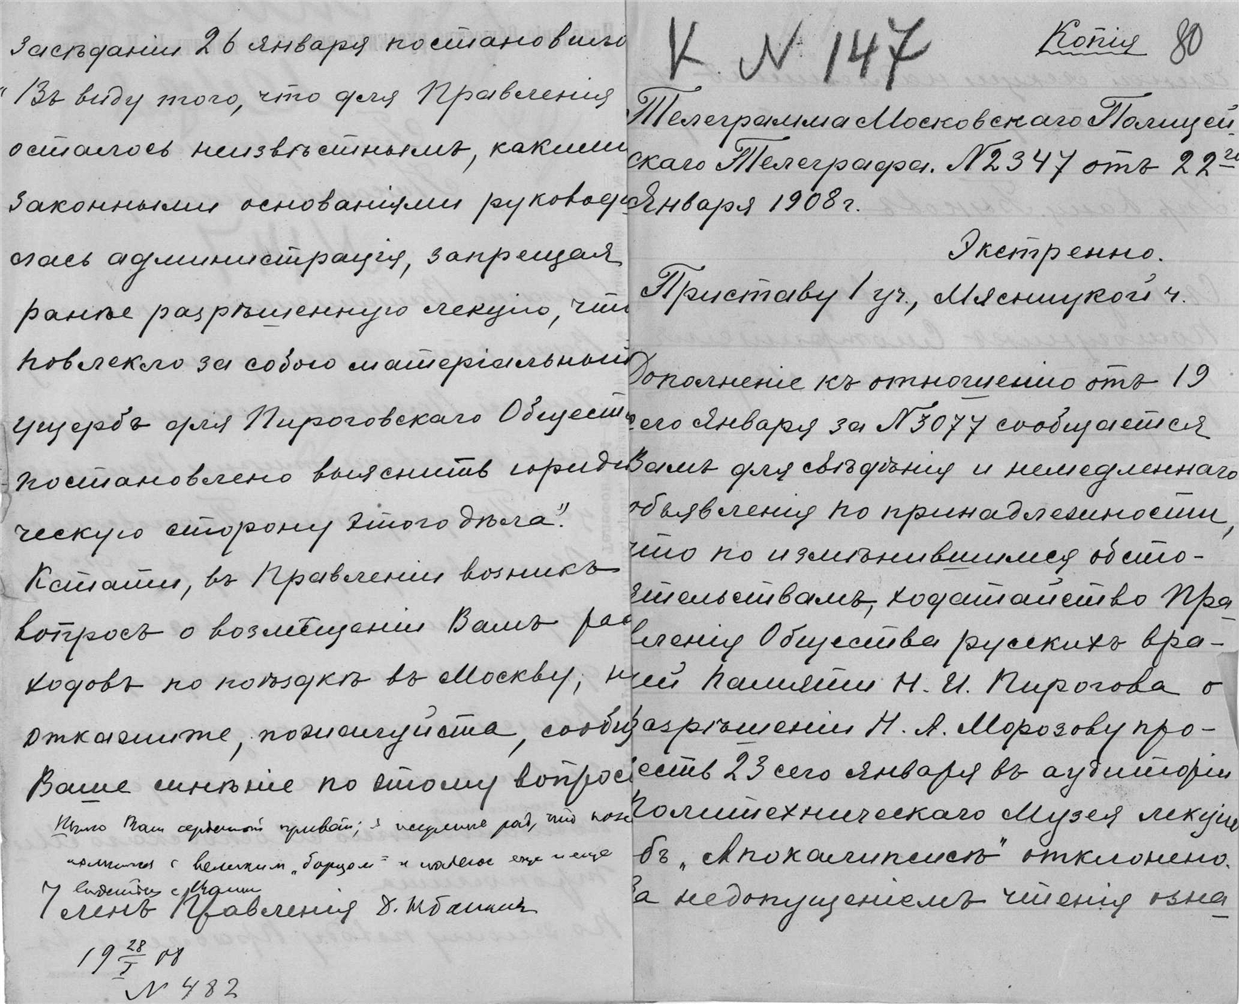 засѣданіи 26 января постановило
"Въ виду того, что для Правленія
осталось неизвѣстнымъ, какими
законными основаніями руководи
лась администрація, запрещая
ранѣе разрѣшенную лекцію, что
повлекло за собою матеріальный
ущербъ для Пироговскаго Общест
постановлено выяснить юриди
ческую сторону этого дѣла".
Кстати, въ Правленіи возникъ
вопросъ о возмѣщеніи Вамъ рас
ходовъ по поѣздкѣ въ Москву; не
откажите, пожалуйста, сообщ
Ваше мнѣніе по этому вопросу
Вам сердечный привѣт; я искренне рад, что
с великим „борцом" и еще и еще
Членъ Правленія Д. Жбанков
19 28/I 08
N 482
К. N 147
Копія 80
Телеграмма Московскаго Полицей
скаго Телеграфа. N 2347 отъ 22го
Января 1908 г.
Экстренно.
Приставу 1 уч., Мясницкой ч.
Дополненіе къ отношенію отъ 19
сего Января за N 3077 сообщается
Вамъ для свѣдѣнія и немедленнаго
объявленія по принадлежности,
что по измѣнившимся обсто-
ятельствамъ, ходатайство Пра
вленія Общества русскихъ вра-
чей памяти Н. И. Пирогова о
разрѣшеніи Н. А. Морозову про-
честь 23 сего Января въ аудиторіи
Политехническаго Музея лекцію
объ „Апокалипсисѣ" отклонено.
За недопущеніемъ чтенія озна